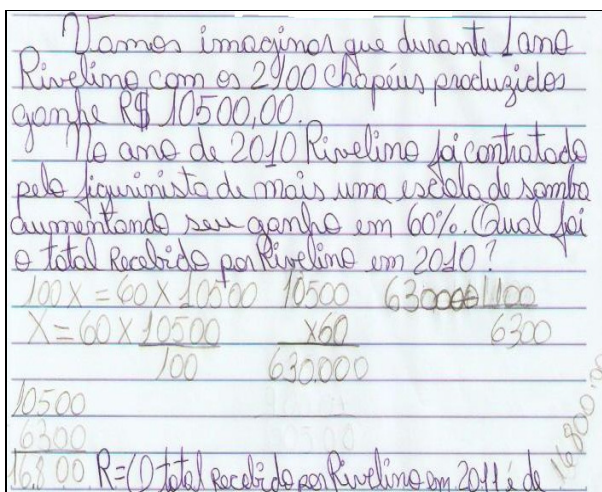 Vamos imaginar que durante 1 ano
Rivelino com os 2100 chapéus produzidos
ganhe R$ 10500,00.
No ano de 2010 Rivelino foi contratado
pelo figurinista de mais uma escola de samba
aumentando seu ganho em 60%. Qual foi
o total Recebido por Rivelino em 2010?
100X = 60 X 10500 10500 630000 100
X = 60 X 10500 X60 6300
100 630.000
10500
6300
16.800 R=O total Recebido por Rivelino em 2011 é de 16.800,00